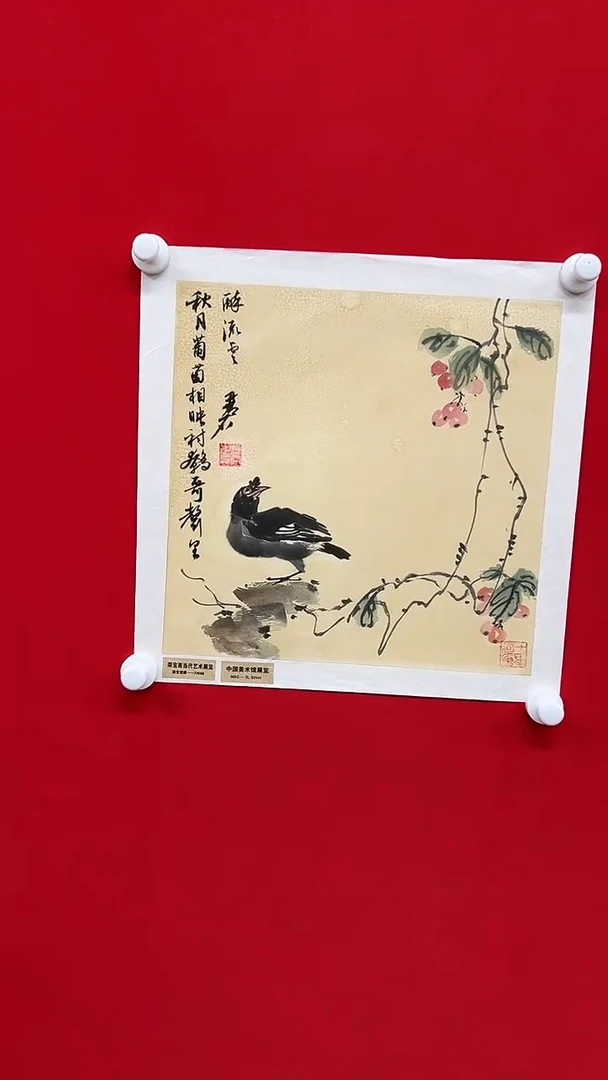 秋月葡萄相映衬鹩哥聲里
醉流云
荣宝斋当代艺术展览
中国美术馆展览